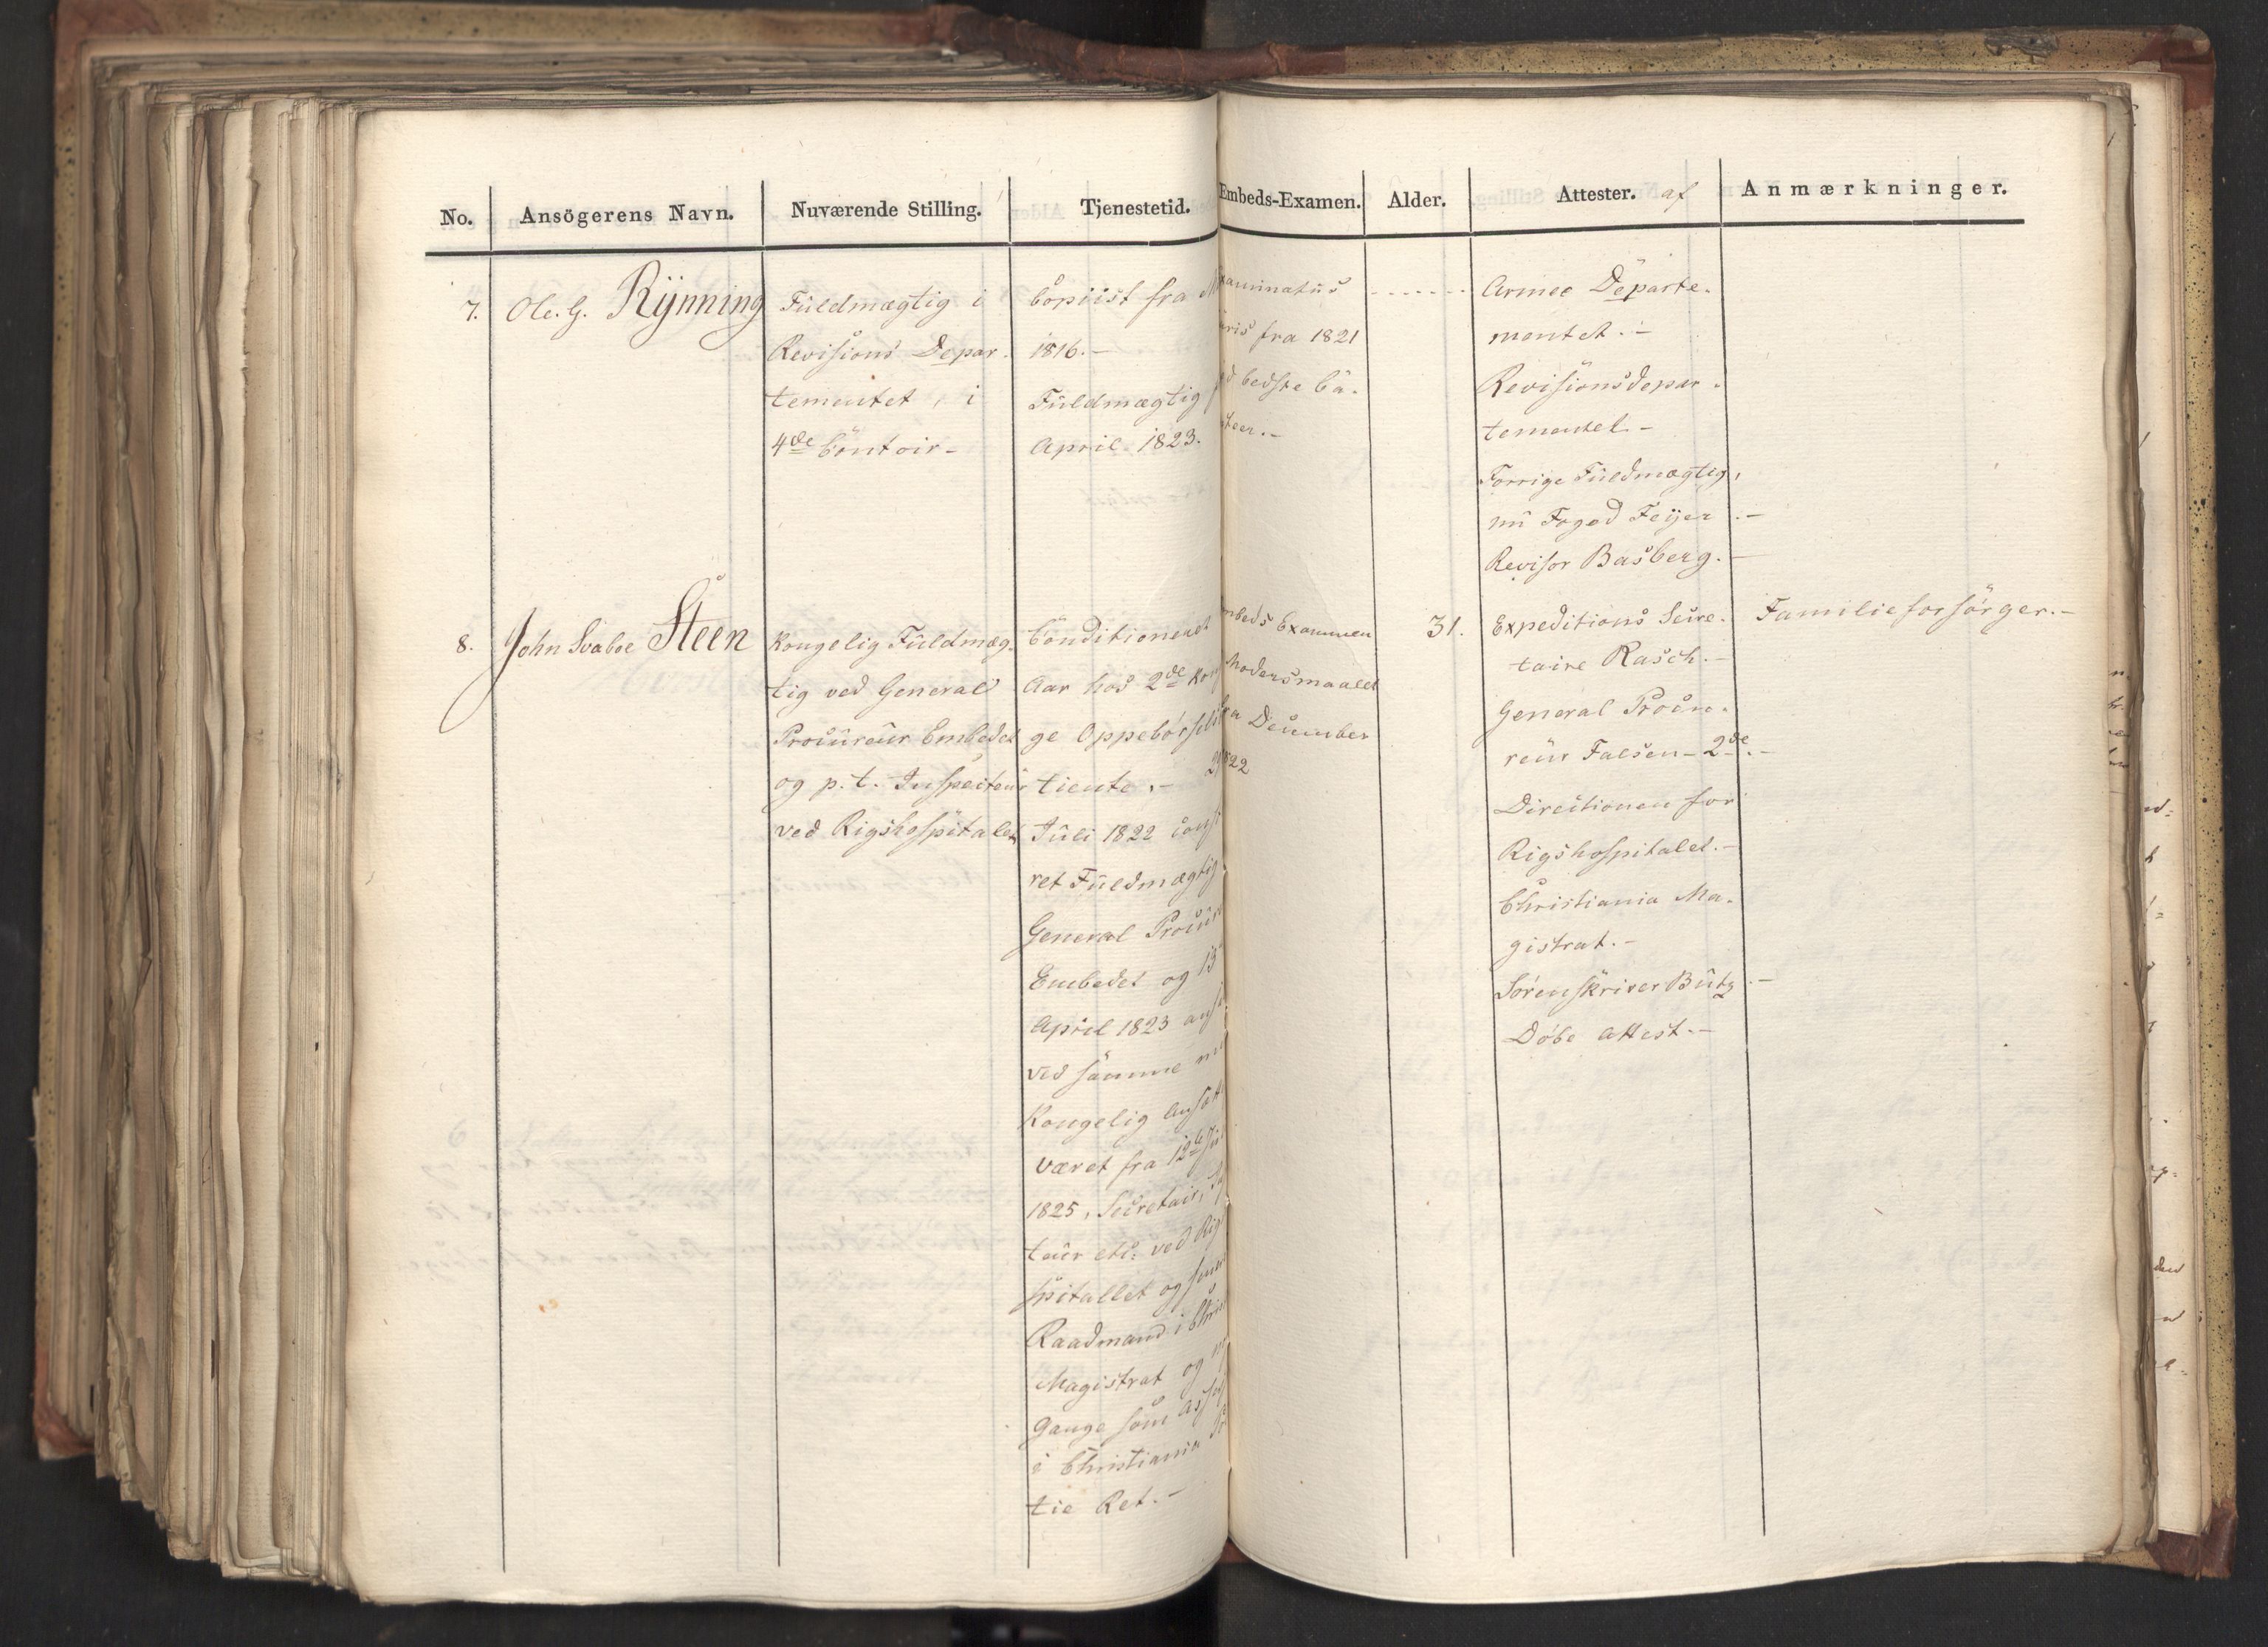 No. Ansögerens Navn. Nuværende Stilling. Tjenestetid. Embeds-Examen. Alder. Attester. af Anmærkninger.
7.
Ole. G. Rÿnning
Fuldmægtig i
Revisions Depar-
tementet, i
4de Contoir-
Copiist fra
1816.-
Fuldmægtig
April 1823.
xaminatus
ris fra 1821
bedste Ca-
teer.-
Armee Departe-
mentet.-
Revisionsdepar-
tementet-
Forrige Fuldmægtig,
nu Foged Feÿer.-
Revisor Basberg.-
8.
John Svaboe Steen
Kongelig Fuldmæg-
tig ved General
Procureur Embedet
og p. t. Inspecteur
ved Rigshospitalet
Conditioneret
Aar hos 2de
ge Oppebørsels
tiente.-
Juli 1822 const
ret Fuldmægtig
General Procur
Embedet og 15
April 1823 ans
ved samme
Kongelig Ansatt
været fra 12te
1825, Secretair,
teur etc: ved Rig
spitallet og
Raadmand i Chris
Magistrat og
Gange som Ass
i Christiania
tie Ret.-
mbeds Examen
Modersmaalet
fra December
1822
31.
Expeditions Secre-
taire Rasch.-
General Procu-
reur Falsen-2de.-
Directionen for
Rigshospitalet.-
Christiania Ma-
gistrat.-
Sørenskriver Butz.-
Døbe Attest.-
Familieforsörger.-